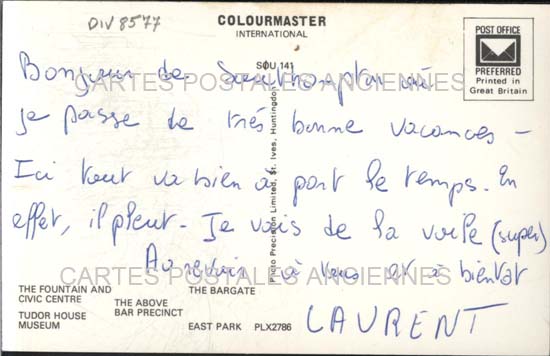 DIV 8577
COLOURMASTER
INTERNATIONAL
POST OFFICE
PREFERRED
Printed in
Great Britain
SOU 141
Photo Precision Limited, St. Ives, Huntingdon
CARTES POSTALES ANCIENNES
Bonjour de Southampton où
je passe de très bonne vacances -
Ici tout va bien à part le temps. En
effet, il pleut - Je vais de la voile (super)
Au revoir à tous et à bientôt
LAURENT
CARTES POSTALES ANCIENNES
THE FOUNTAIN AND
CIVIC CENTRE
THE BARGATE
THE ABOVE
BAR PRECINCT
TUDOR HOUSE
MUSEUM
EAST PARK PLX2786